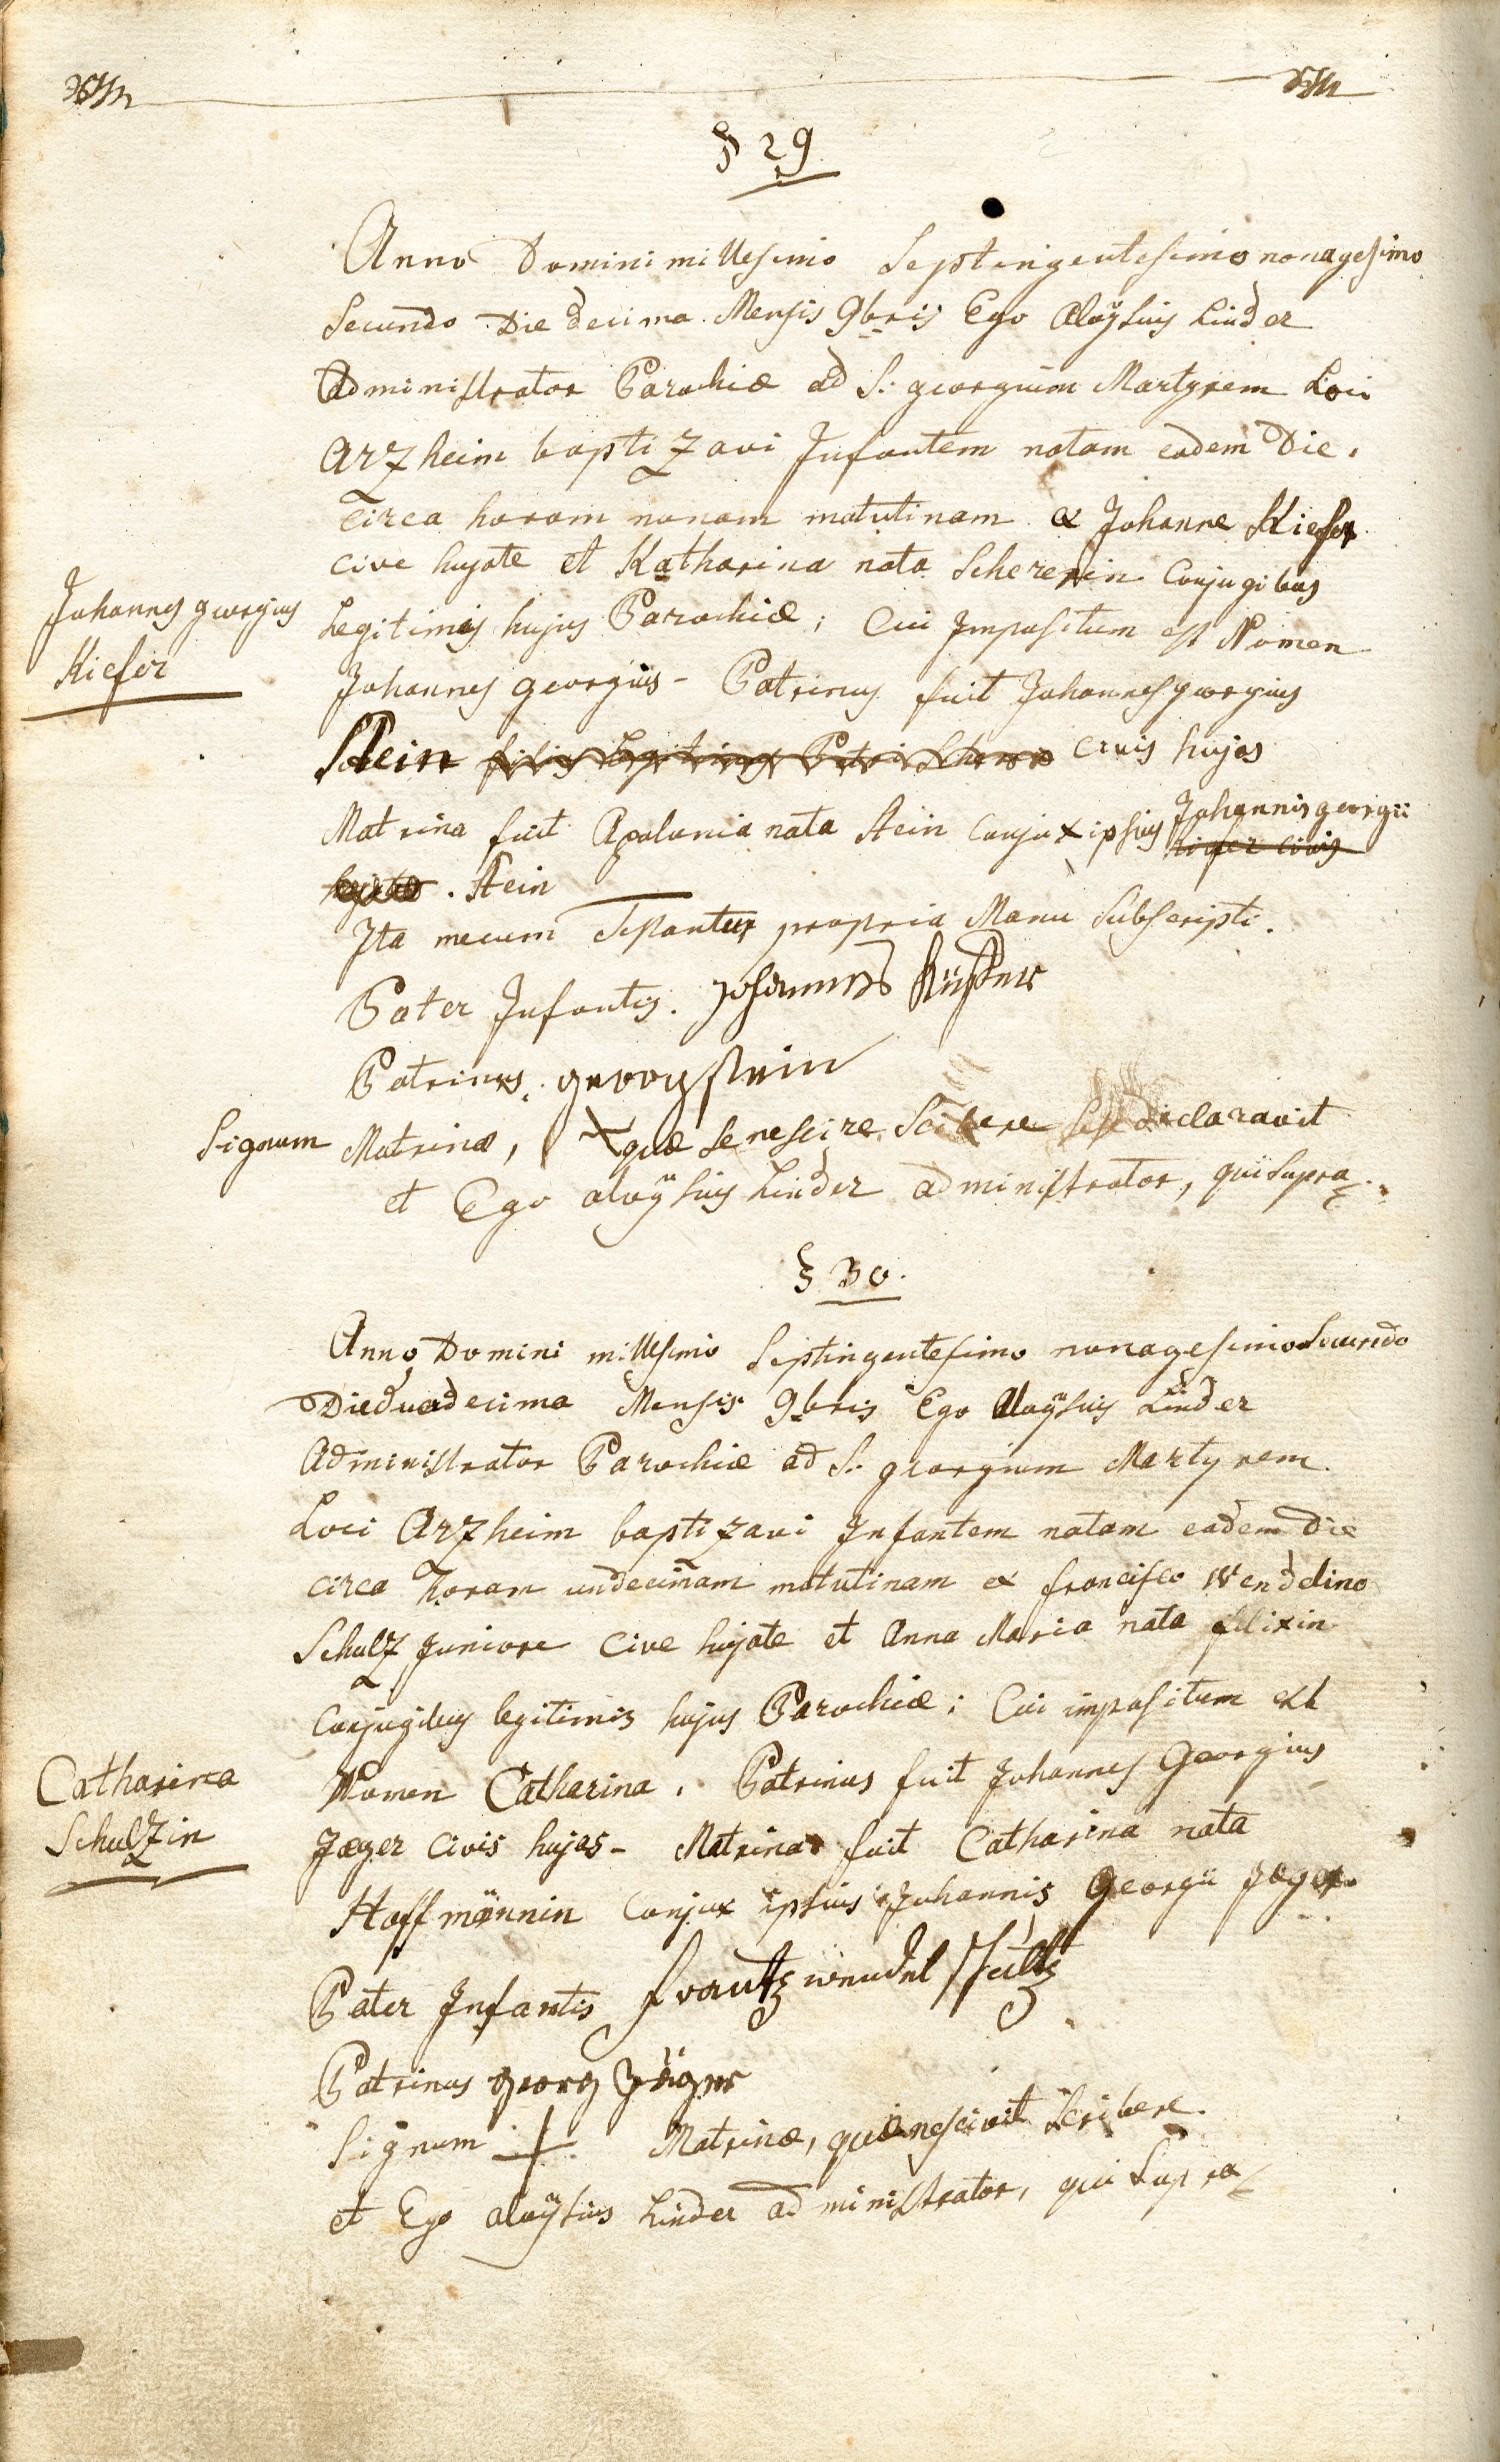 § 29
Anno Domini millesimo Septingentesimo nonagesimo
Secundo Die decima Mensis 9bris Ego Aloÿsius Linder
Administrator Parochiæ ad S: georgium Martyrem Loci
Arzheim baptizavi Infantem natam eadem Die.
Circa horam nonam matutinam ex Johanne Kiefer
cive hujate et Katharina nata Schererin Conjugibus
Johannes georgius
Legitimis hujus Parochiæ; Cui Impositum est Nomen
Kiefer
Johannes georgius - Patrinus fuit Johannes georgius
Stein filius Legitimus Petri civis hujas
Matrina fuit Apolonia nata Stein Conjux ipsius Johannis georgii
civis
. Stein
Ita mecum testantur propria Manu Subscripti.
Pater Infantis. Johannes
Patrinus. georg stein
Signum Matrinæ, X quæ se nescire Scibere sese declaravit
et Ego aloÿsius Linder administrator, qui supra.
§ 30.
Anno Domini millesimo Septingentesimo nonagesimo Secundo
Die duadecima Mensis 9bris Ego Aloÿsius Linder
Administrator Parochiæ ad S: georgium Martyrem.
Loci Arzheim baptizavi Infantem natam eadem Die
circa horam undecimam matutinam ex francisco Wendelino
Schulz Juniore Cive hujate et Anna Maria nata felixin
Conjugibus legitimis hujus Parochiæ; Cui impositum est
Catharina
Nomen Catharina. Patrinus fuit Johannes Georgius
Schulzin
Jæger Civis hujas - Matrina fuit Catharina nata
Hoffmännin Conjux ipsius Johannis Georgii Jæger
Pater Infantis frantz wendel
Patrinus georg Jäger
Signum + Matrinæ, quæ nescivit Scribere.
et Ego aloÿsius Linder administrator, qui Supra